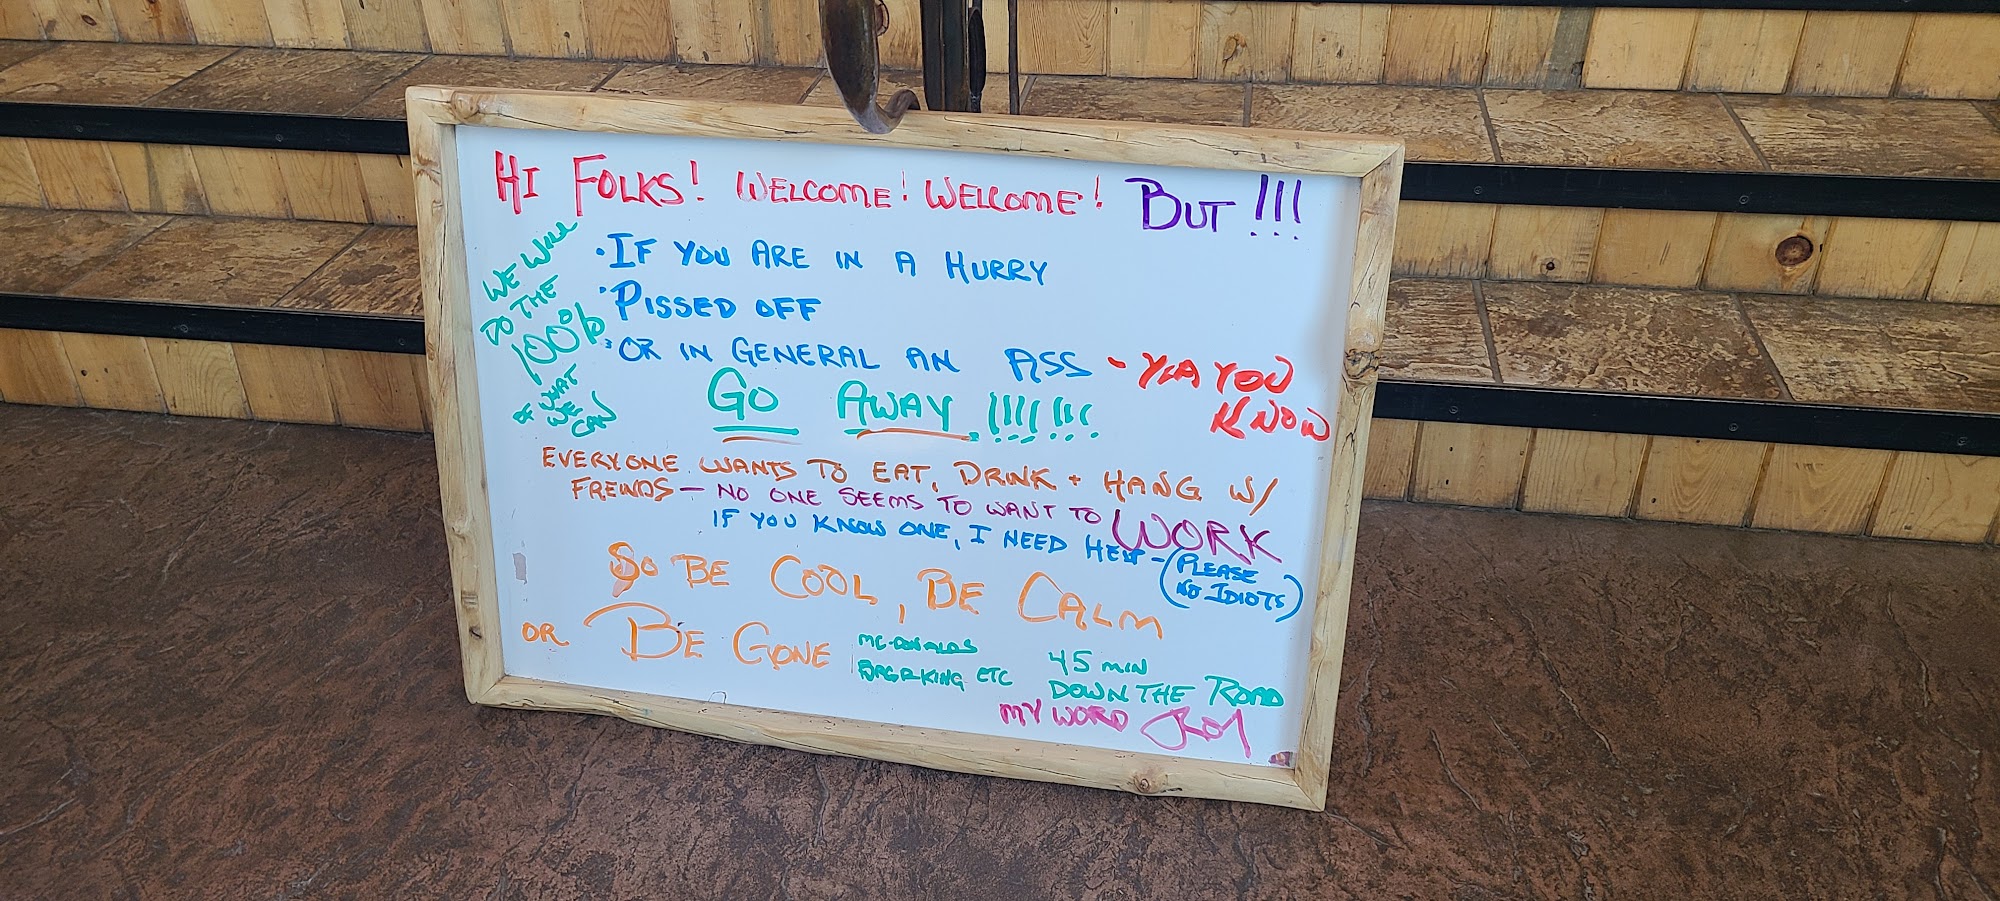 HI FOLKS! WELCOME! WELCOME! BUT!!!
WE WILL
DO THE
100%
OF WHAT
WE
CAN
• IF YOU ARE IN A HURRY
• PISSED OFF
• OR IN GENERAL AN ASS - YEA YOU
KNOW
GO AWAY!!!!!!!
EVERYONE WANTS TO EAT, DRINK + HANG W/
FREINDS - NO ONE SEEMS TO WANT TO WORK
IF YOU KNOW ONE, I NEED HELP - (PLEASE
NO IDIOTS)
SO BE COOL, BE CALM
OR BE GONE
MC-DONALDS
KING ETC
45 MIN
DOWN THE ROAD
MY WORD